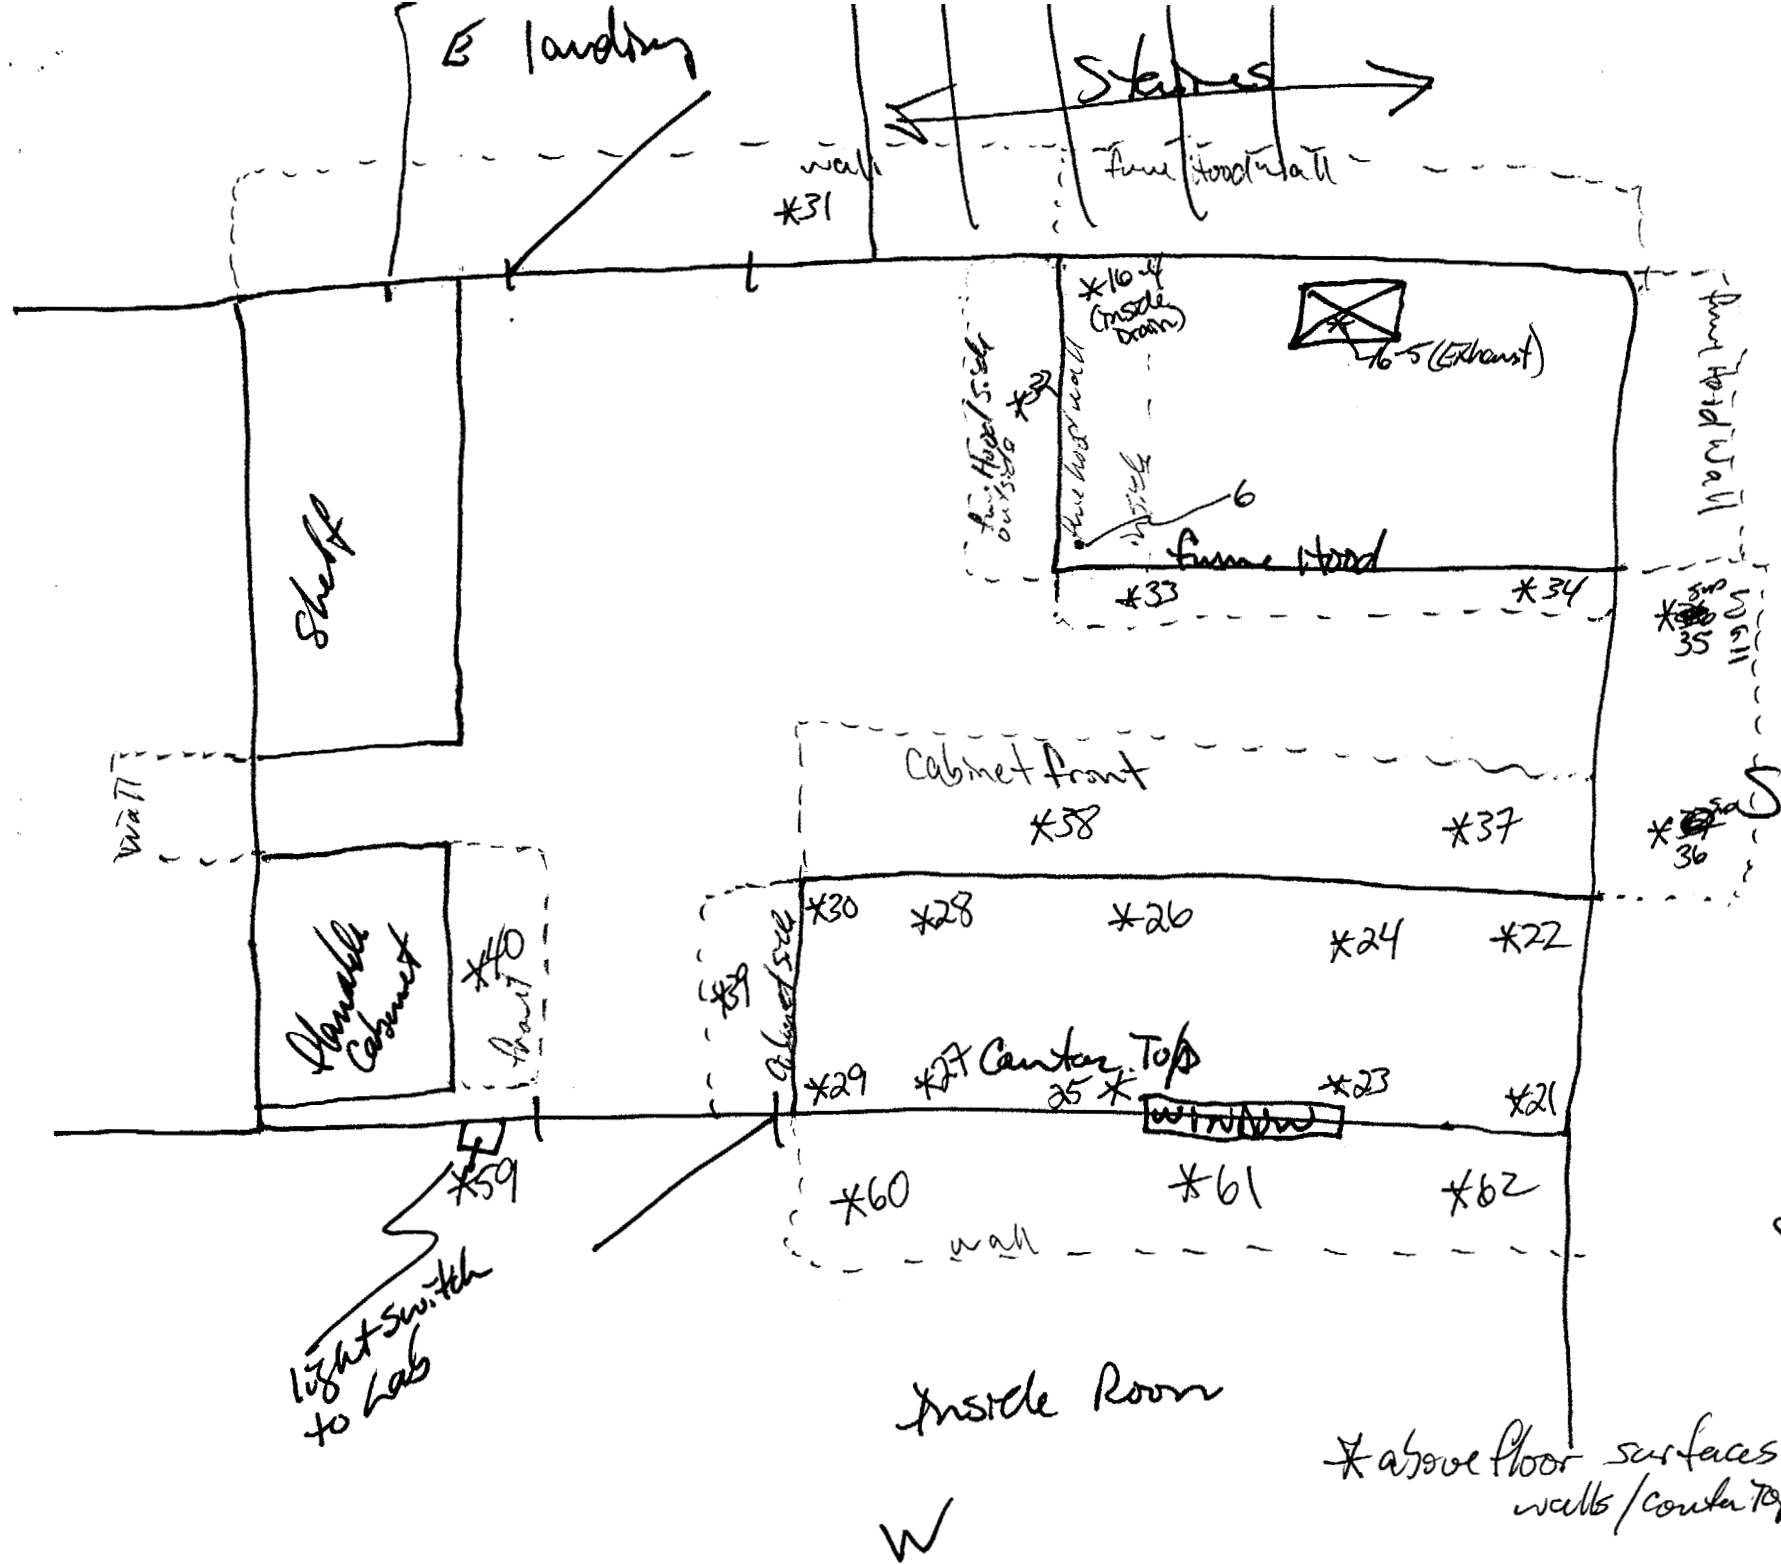 E landing
Staires
wall
fume Hood wall
*31
*16-4
(inside
Drain)
16-5 (Exhaust)
fume Hood wall
fume Hood side
outside
*32
fume hood wall
inside
6
fume Hood
*33
*34
Shelf
*
35
wall
wall
Cabinet front
*38
*37
S
*
36
*30
*28
*26
*24
*22
Cabinet
*40
front
*39
Cabinet side
*29
*27
Counter Tops
25 *
*23
*21
WINDOW
*59
*60
*61
*62
wall
light switch
to Lab
Inside Room
*above floor surfaces
walls/counter Top
W